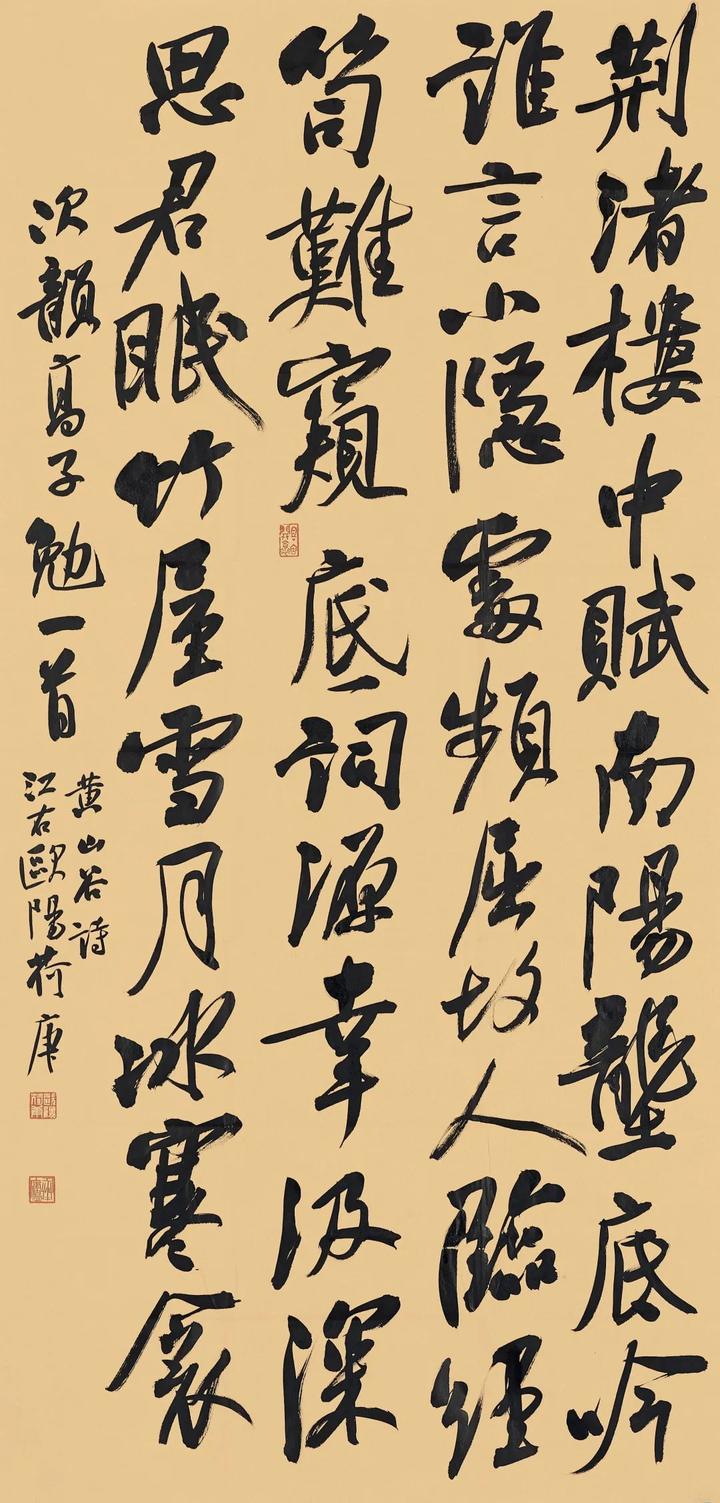 荆渚樓中賦南陽壟底吟
誰言小隱處頻屈故人臨經
笥難窺底詞源幸汲深
思君眠竹屋雪月冰寒衾
次韻高子勉一首
黄山谷詩
江右歐陽荷庚